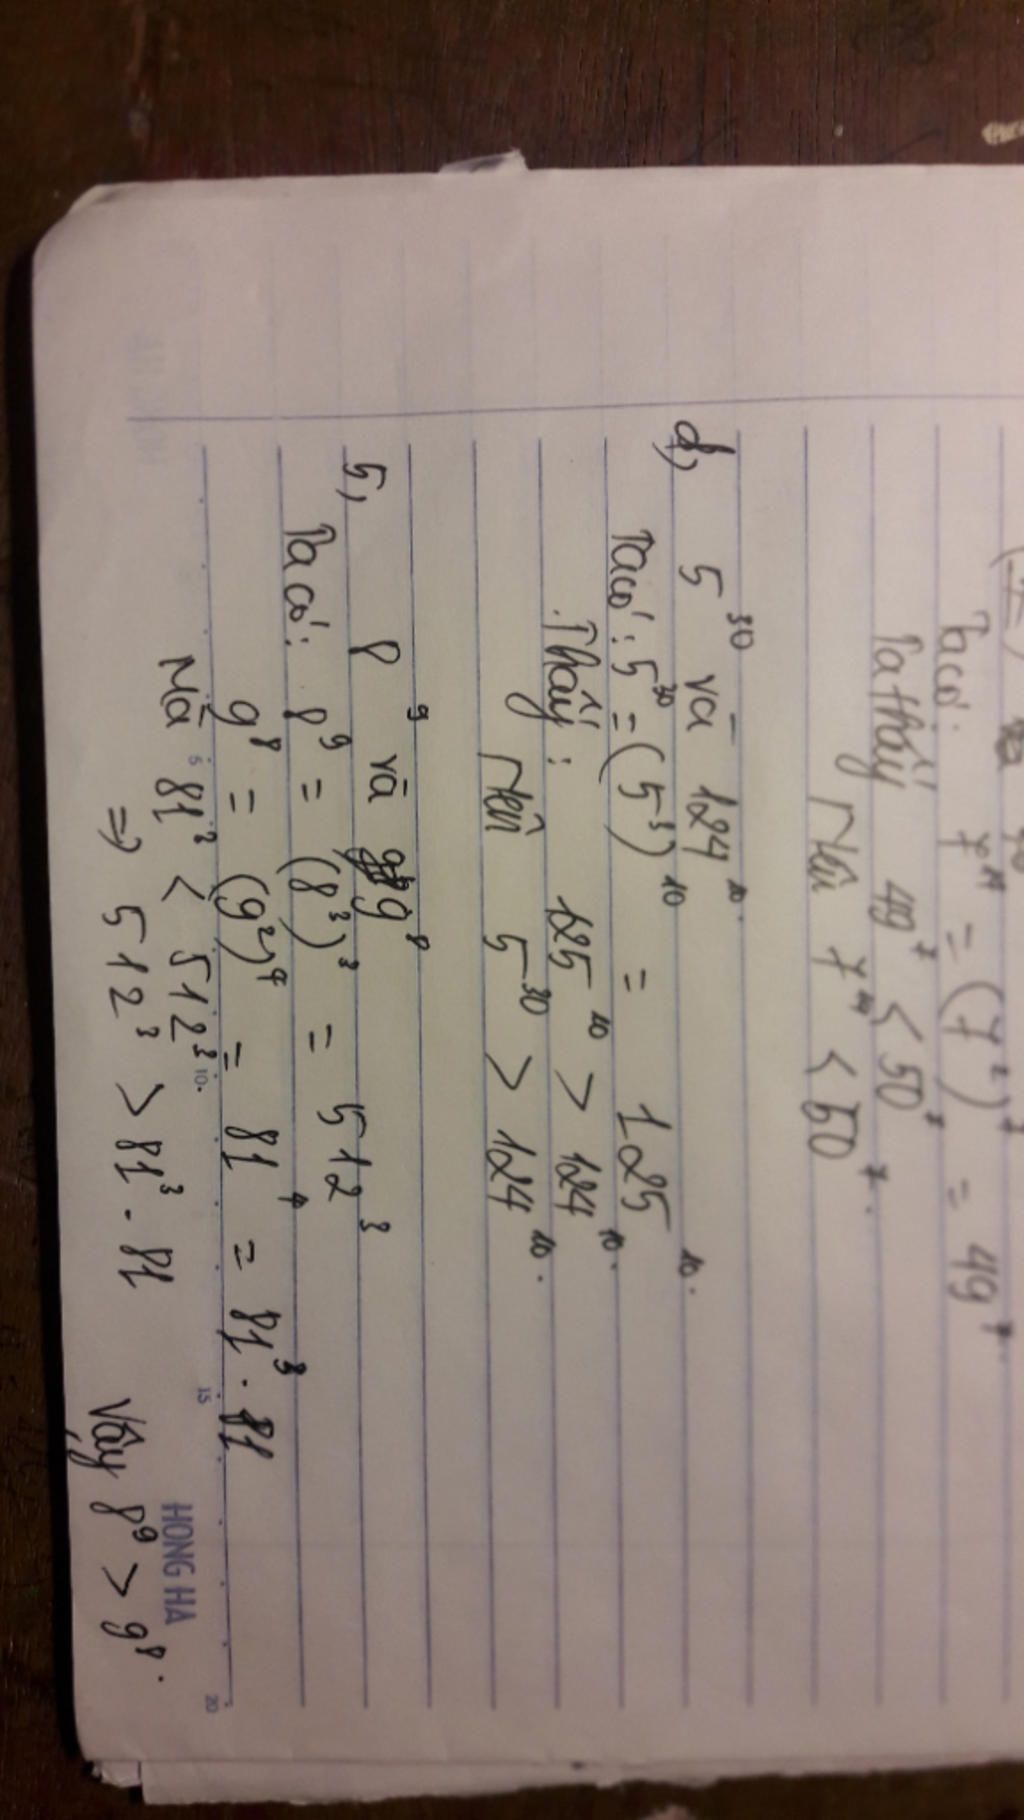 Ta có: 7¹⁴ = (7²)⁷ = 49⁷.
Ta thấy 49⁷ < 50⁷
Nên 7¹⁴ < 50⁷.
d, 5³⁰ và 124¹⁰.
Ta có: 5³⁰ = (5³)¹⁰ = 125¹⁰.
Thấy: 125¹⁰ > 124¹⁰.
Nên 5³⁰ > 124¹⁰.
5, 8⁹ và 9⁸
Ta có: 8⁹ = (8³)³ = 512³
9⁸ = (9²)⁴ = 81⁴ = 81³ . 81
Mà 81³ < 512³
=> 512³ > 81³ . 81 Vậy 8⁹ > 9⁸.
5 10 15 20
HONG HA